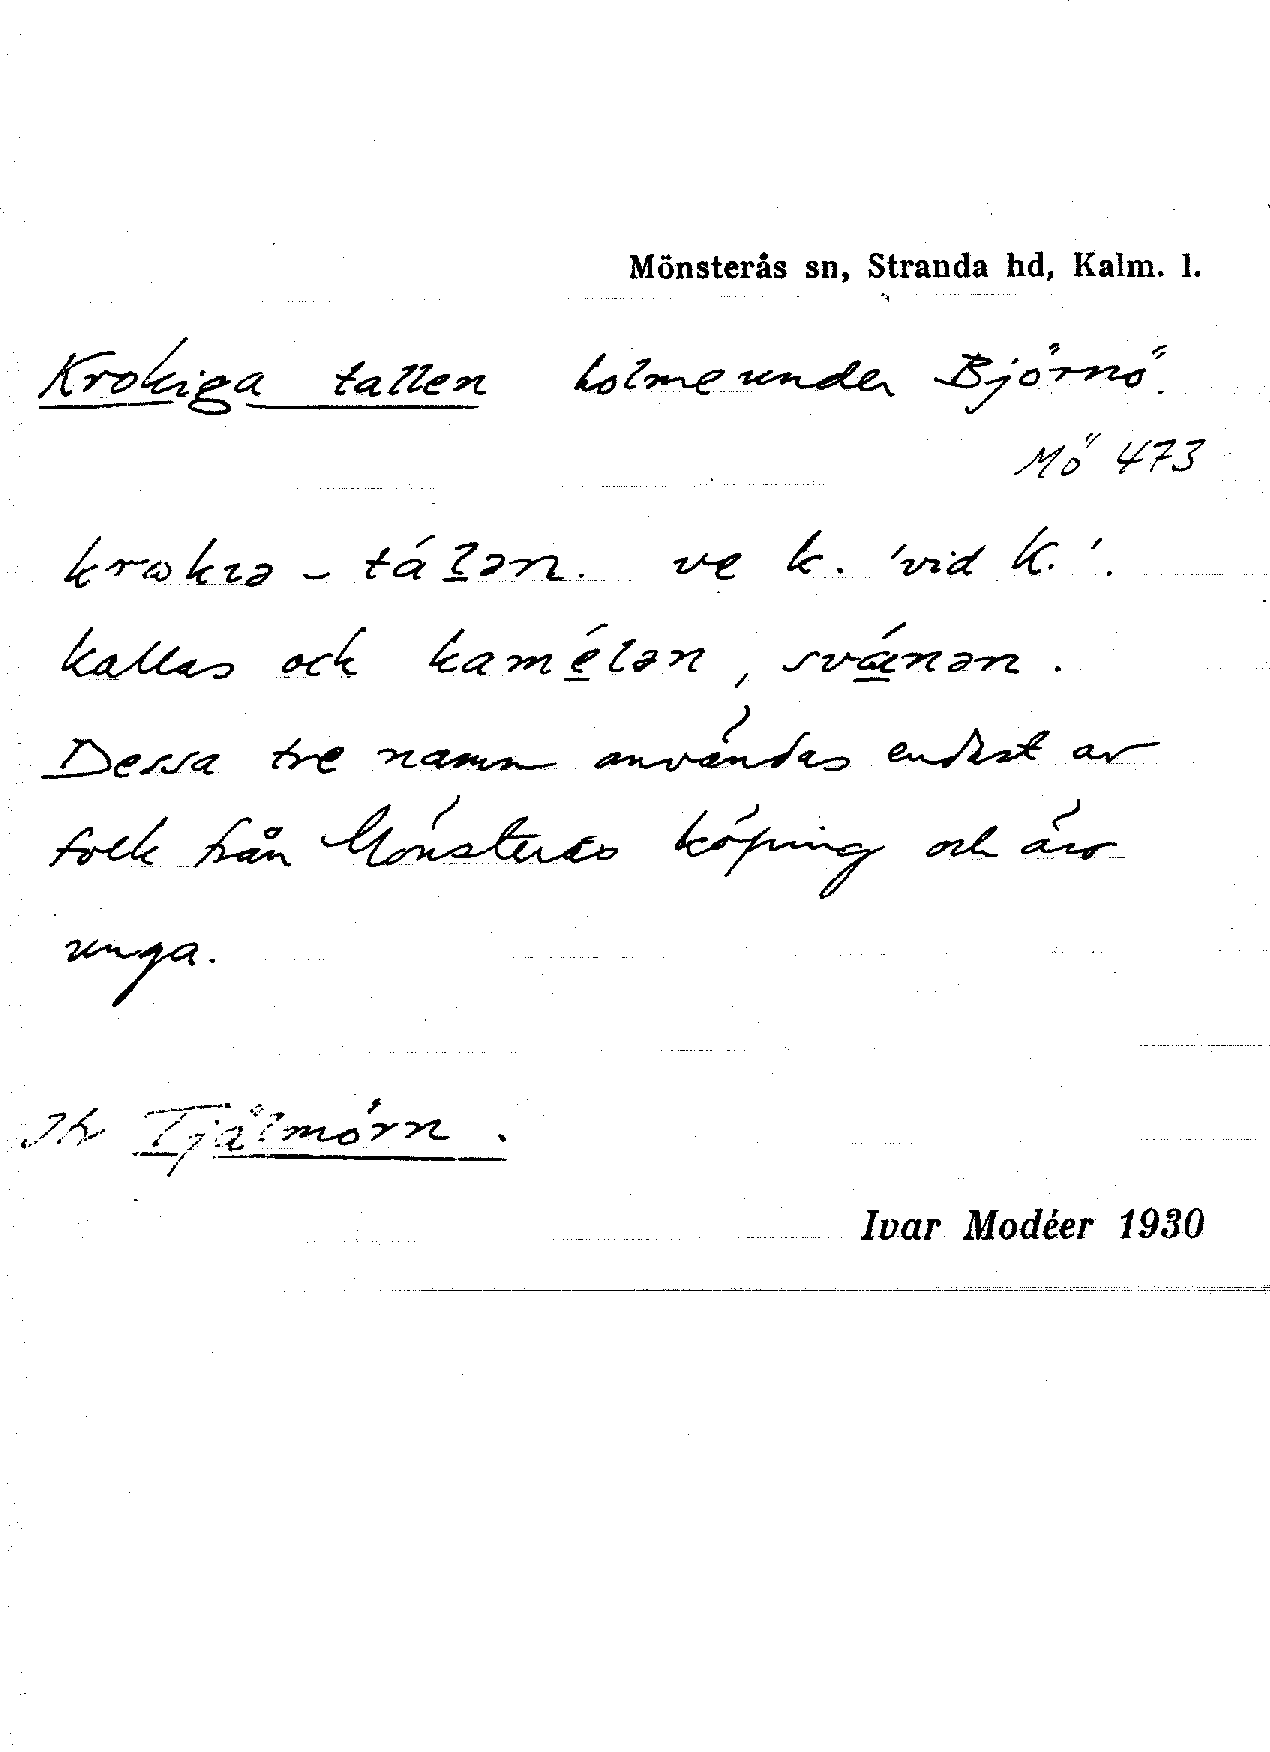 Mönsterås sn, Stranda hd, Kalm. l.
Krokiga tallen holme under Björnö.
Mö 473
krωkıə - tálən. ve k. 'vid K.'.
kallas ock kamélən, svánən.
Dessa tre namn användas endast av
folk från Mönsterås köping och äro
unga.
Jfr Tjälmörn.
Ivar Modéer 1930